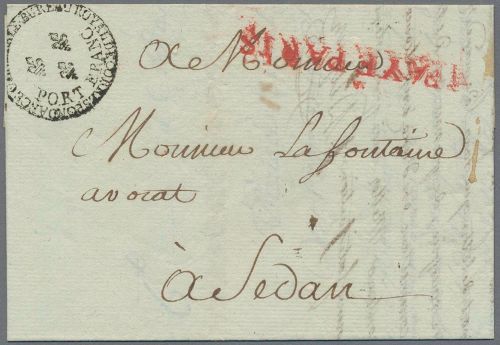 BUREAU ROYAL DE CORRESPONDANCE
PORT FRANC
P.PAYE PARIS
A Monsieur
Monsieur Lafontaine
avocat
à Sedan